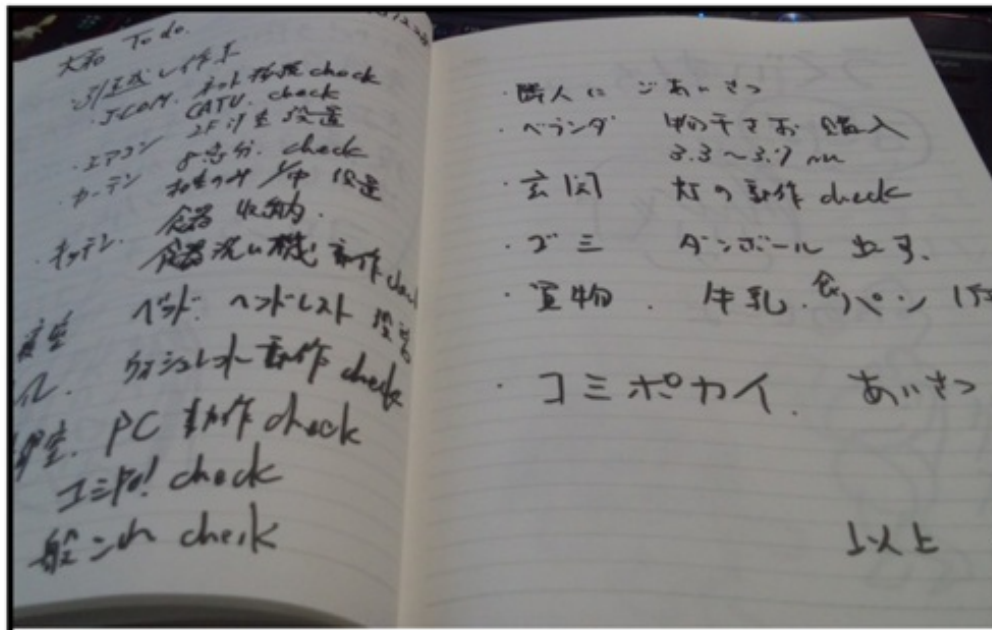 大和 To do.
・J:COM. ネット接続 check
CATV. check
2F 設置
・エアコン check
・カーテン 設置
食器 収納.
・キッチン. 食器洗い機 動作 check
寝室 ベッド. ヘッドレスト 設置
ウォシュレット 動作 check
PC 動作 check
コミPo! check
艦これ check
・隣人に ごあいさつ
・ベランダ 物干さお 購入
3.3〜3.7 m
・玄関 灯の動作 check
・ゴミ ダンボール 出す.
・買物. 牛乳. 食パン
・コミポカイ. あいさつ
以上